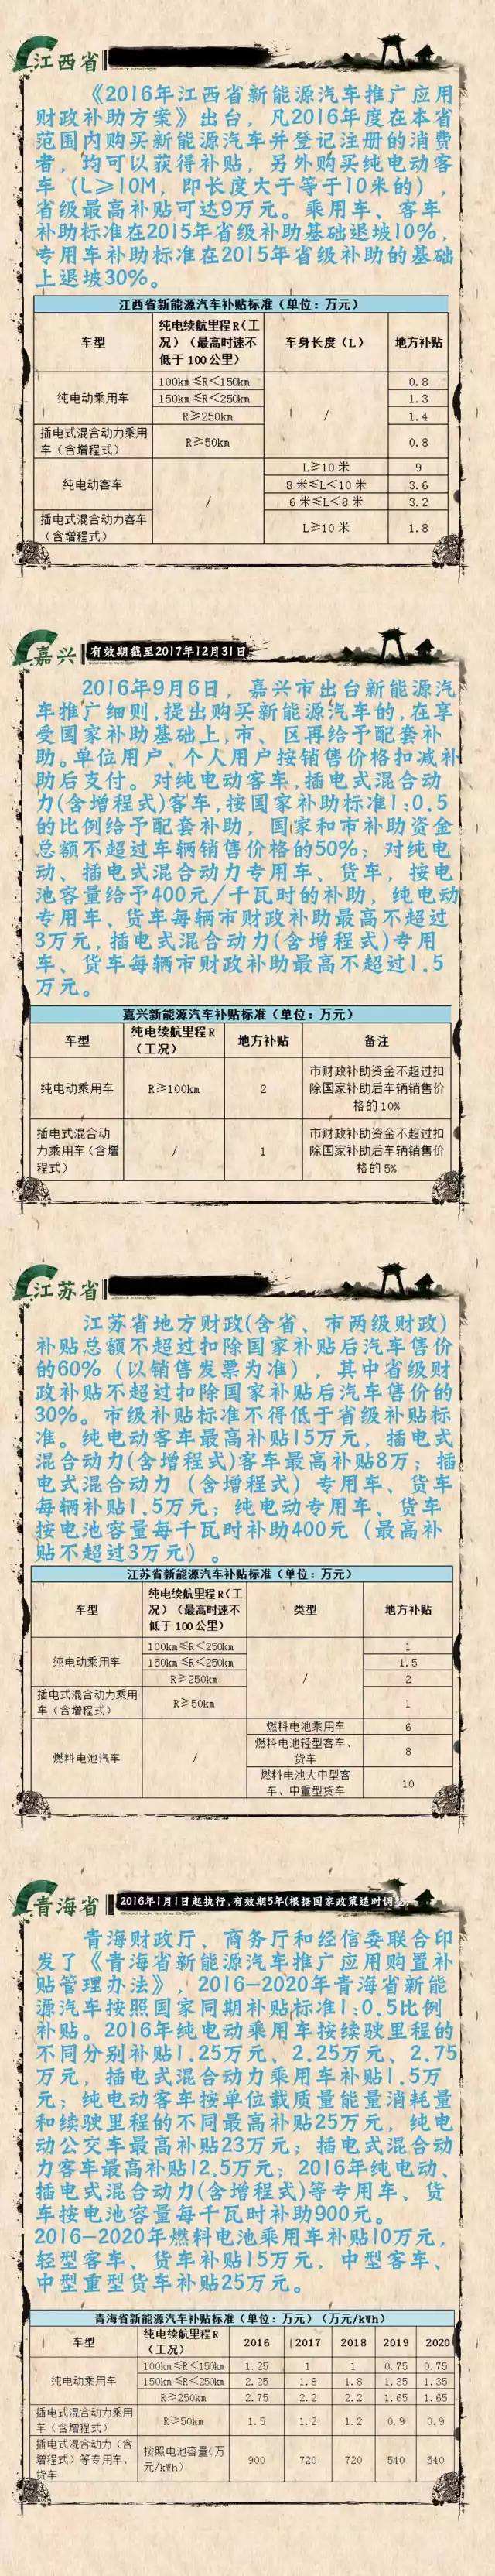 江西省
《2016年江西省新能源汽车推广应用
财政补助方案》出台，凡2016年度在本省
范围内购买新能源汽车并登记注册的消费
者，均可以获得补贴，另外购买纯电动客
车（L≥10M，即长度大于等于10米的），
省级最高补贴可达9万元。乘用车、客车
补助标准在2015年省级补助基础退坡10%，
专用车补助标准在2015年省级补助的基础
上退坡30%。
江西省新能源汽车补贴标准（单位：万元）
车型 纯电续航里程R（工况）（最高时速不低于100公里） 车身长度（L） 地方补贴
纯电动乘用车 100km≤R<150km / 0.8
150km≤R<250km 1.3
R≥250km 1.4
插电式混合动力乘用车（含增程式） R≥50km 0.8
纯电动客车 / L≥10米 9
8米≤L<10米 3.6
6米≤L<8米 3.2
插电式混合动力客车（含增程式） L≥10米 1.8
嘉兴 有效期截至2017年12月31日
2016年9月6日，嘉兴市出台新能源汽
车推广细则,提出购买新能源汽车的,在享
受国家补助基础上,市、区再给予配套补
助。单位用户、个人用户按销售价格扣减补
助后支付。对纯电动客车,插电式混合动
力(含增程式)客车,按国家补助标准1:0.5
的比例给予配套补助，国家和市补助资金
总额不超过车辆销售价格的50%；对纯电
动、插电式混合动力专用车、货车，按电
池容量给予400元/千瓦时的补助，纯电动
专用车、货车每辆市财政补助最高不超过
3万元,插电式混合动力(含增程式)专用
车、货车每辆市财政补助最高不超过1.5
万元。
嘉兴新能源汽车补贴标准（单位：万元）
车型 纯电续航里程R（工况） 地方补贴 备注
纯电动乘用车 R≥100km 2 市财政补助资金不超过扣除国家补助后车辆销售价格的10%
插电式混合动力乘用车（含增程式） / 1 市财政补助资金不超过扣除国家补助后车辆销售价格的5%
江苏省
江苏省地方财政(含省、市两级财政)
补贴总额不超过扣除国家补贴后汽车售价
的60%（以销售发票为准），其中省级财
政补贴不超过扣除国家补贴后汽车售价的
30%。市级补贴标准不得低于省级补贴标
准。纯电动客车最高补贴15万元，插电式
混合动力(含增程式)客车最高补贴8万；插
电式混合动力（含增程式）专用车、货车
每辆补贴1.5万元；纯电动专用车、货车
按电池容量每千瓦时补助400元（最高补
贴不超过3万元）。
江苏省新能源汽车补贴标准（单位：万元）
车型 纯电续航里程R（工况）（最高时速不低于100公里） 类型 地方补贴
纯电动乘用车 100km≤R<250km / 1
150km≤R<250km 1.5
R≥250km 2
插电式混合动力乘用车（含增程式） R≥50km 1
燃料电池汽车 / 燃料电池乘用车 6
燃料电池轻型客车、货车 8
燃料电池大中型客车、中重型货车 10
青海省 2016年1月1日起执行,有效期5年(根据国家政策适时调整)
青海财政厅、商务厅和经信委联合印
发了《青海省新能源汽车推广应用购置补
贴管理办法》，2016-2020年青海省新能
源汽车按照国家同期补贴标准1:0.5比例
补贴。2016年纯电动乘用车按续驶里程的
不同分别补贴1.25万元、2.25万元、2.75
万元，插电式混合动力乘用车补贴1.5万
元；纯电动客车按单位载质量能量消耗量
和续驶里程的不同最高补贴25万元，纯电
动公交车最高补贴23万元；插电式混合动
力客车最高补贴12.5万元；2016年纯电动、
插电式混合动力(含增程式)等专用车、货
车按电池容量每千瓦时补助900元。
2016-2020年燃料电池乘用车补贴10万元，
轻型客车、货车补贴15万元，中型客车、
中型重型货车补贴25万元。
青海省新能源汽车补贴标准（单位：万元）（万元/kWh）
车型 纯电续航里程R（工况） 2016 2017 2018 2019 2020
纯电动乘用车 100km≤R<150km 1.25 1 1 0.75 0.75
150km≤R<250km 2.25 1.8 1.8 1.35 1.35
R≥250km 2.75 2.2 2.2 1.65 1.65
插电式混合动力乘用车（含增程式） R≥50km 1.5 1.2 1.2 0.9 0.9
插电式混合动力（含增程式）等专用车、货车 按照电池容量(万元/kWh) 900 720 720 540 540